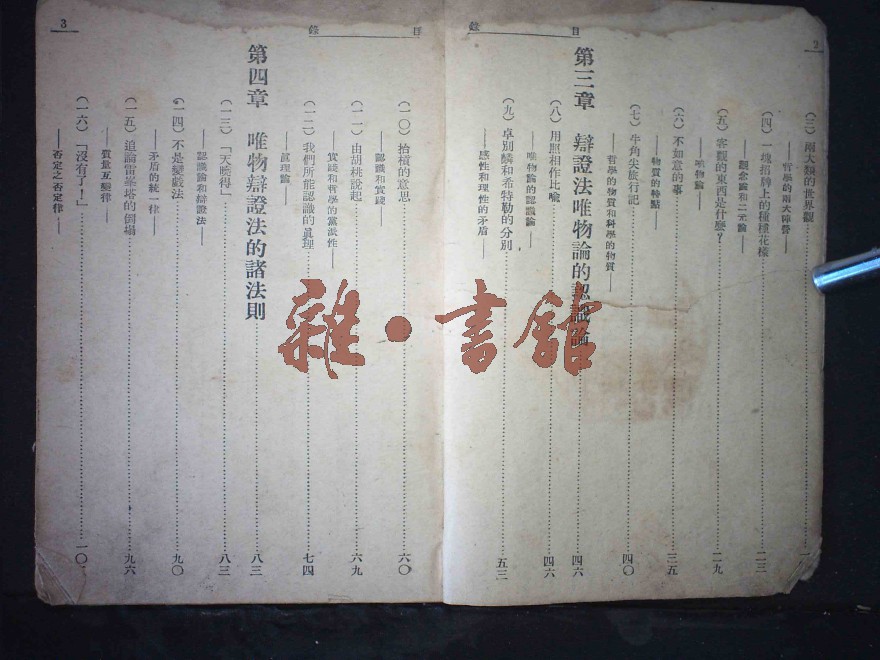 目　錄
2
（三）兩大類的世界觀
——哲學的兩大陣營——
（四）一塊招牌上的種種花樣……二三
——觀念論和二元論——
（五）客觀的東西是什麼？……二九
——唯物論——
（六）不如意的事……三五
——物質的特點——
（七）牛角尖旅行記……四〇
——哲學的物質和科學的物質——
第三章　辯證法唯物論的認識論……四六
（八）用照相作比喻……四六
——唯物論的認識論——
（九）卓別麟和希特勒的分別……五三
——感性和理性的矛盾——
目　錄
3
（一〇）抬槓的意思……六〇
——認識和實踐——
（一一）由胡桃說起……六九
——實踐和哲學的黨派性——
（一二）我們所能認識的眞理……七四
——眞理論——
第四章　唯物辯證法的諸法則……八三
（一三）「天曉得！」……八三
——認識論和辯證法——
（一四）不是變戲法……九〇
——矛盾的統一律——
（一五）追論雷峯塔的倒塌……九六
——質量互變律——
（一六）「沒有了！」……一〇
——否定之否定律——
雜·書館